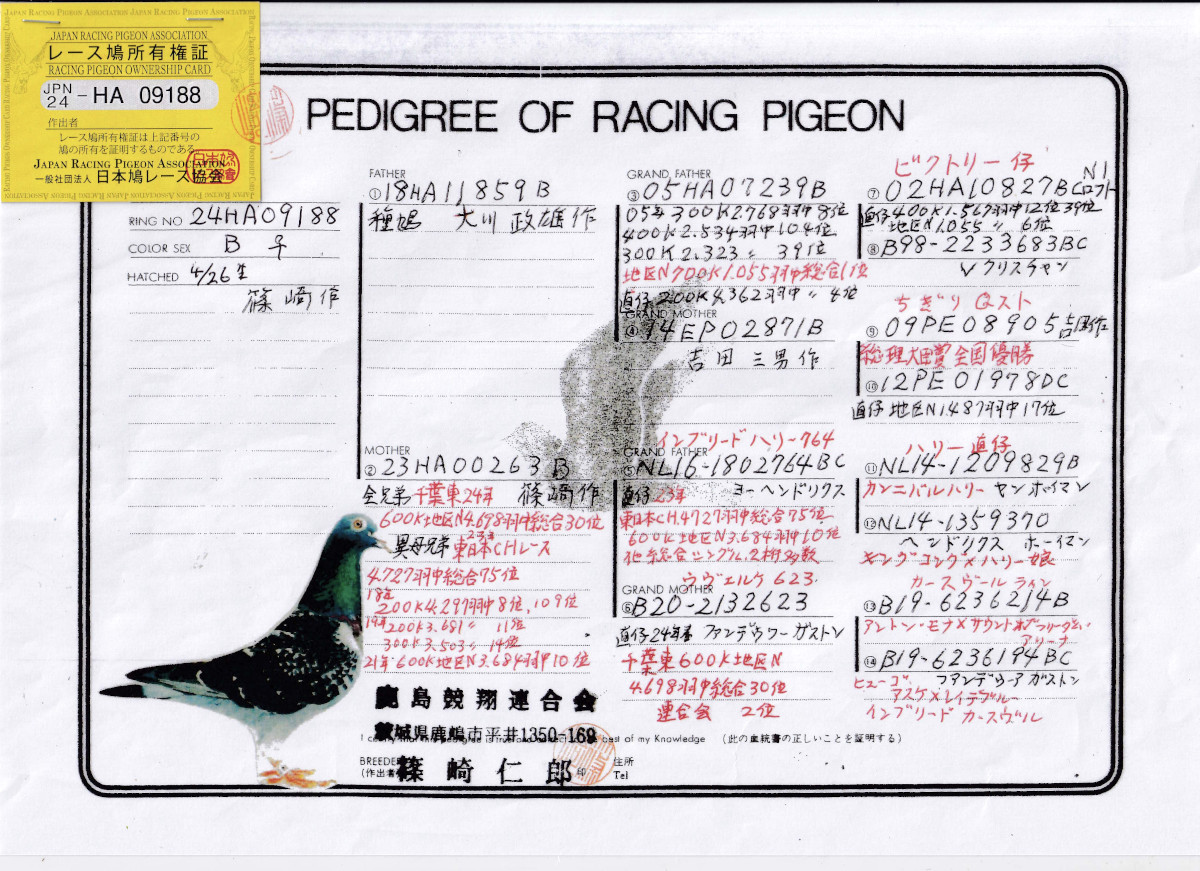 JAPAN RACING PIGEON ASSOCIATION
レース鳩所有権証
RACING PIGEON OWNERSHIP CARD
JPN 24 - HA 09188
作出者
レース鳩所有権証は上記番号の
鳩の所有を証明するものである。
JAPAN RACING PIGEON ASSOCIATION
一般社団法人 日本鳩レース協会
PEDIGREE OF RACING PIGEON
RING NO 24HA09188
COLOR SEX B ♀
HATCHED 4/26生
篠崎作
FATHER
①18HA11859B
種鳩 大川政雄作
MOTHER
②23HA00263B
全兄弟千葉東24年 篠崎作
600K地区N4.698羽中総合30位
異母兄弟 23年 東日本CHレース
4.727羽中総合75位
18年
200K4.297羽中8位,109位
19年200K3.681〃 11位
300K3.503〃 14位
21年600K地区N3.684羽中10位
GRAND FATHER
③05HA07239B
05年300K2.768羽中8位
400K2.534羽中104位
300K2.323〃 39位
地区N700K1.055羽中総合1位
直仔200K4.362羽中〃4位
GRAND MOTHER
④14EP02871B
吉田三男作
インブリードハリー764
GRAND FATHER
⑤NL16-1802764BC
直仔23年 ヨーヘンドリクス
東日本CH.4727羽中総合75位
600K地区N3.684羽中10位
他総合シングル,2桁多数
ウヴェルケ623.
GRAND MOTHER
⑥B20-2132623
直仔24年春 ファンデウワーガストン
千葉東600K地区N
4.698羽中総合30位
連合会 2位
ビクトリー仔
⑦02HA10827BC N1ロフト
直仔400K1.567羽中12位39位
地区N1.055〃 6位
⑧B98-2233683BC
Vクリスチャン
ちぎりQスト
⑨09PE08905 吉田作
総理大臣賞全国優勝
⑩12PE01978DC
直仔地区N1487羽中17位
ハリー直仔
⑪NL14-1209829B
カンニバルハリー ヤンホイマン
⑫NL14-1359370
ヘンドリクス ホーイマン
キングコング×ハリー娘
カースヴールライン
⑬B19-6236214B
アリーナー
⑭B19-6236194BC
ヒューゴ. ファンデウーアガストン
アスケ×レイデヴルー
インブリードカースヴル
鹿島競翔連合会
茨城県鹿嶋市平井1350-169
best of my Knowledge (此の血統書の正しいことを証明する)
BREEDER
(作出者) 篠崎仁郎 印
住所
Tel